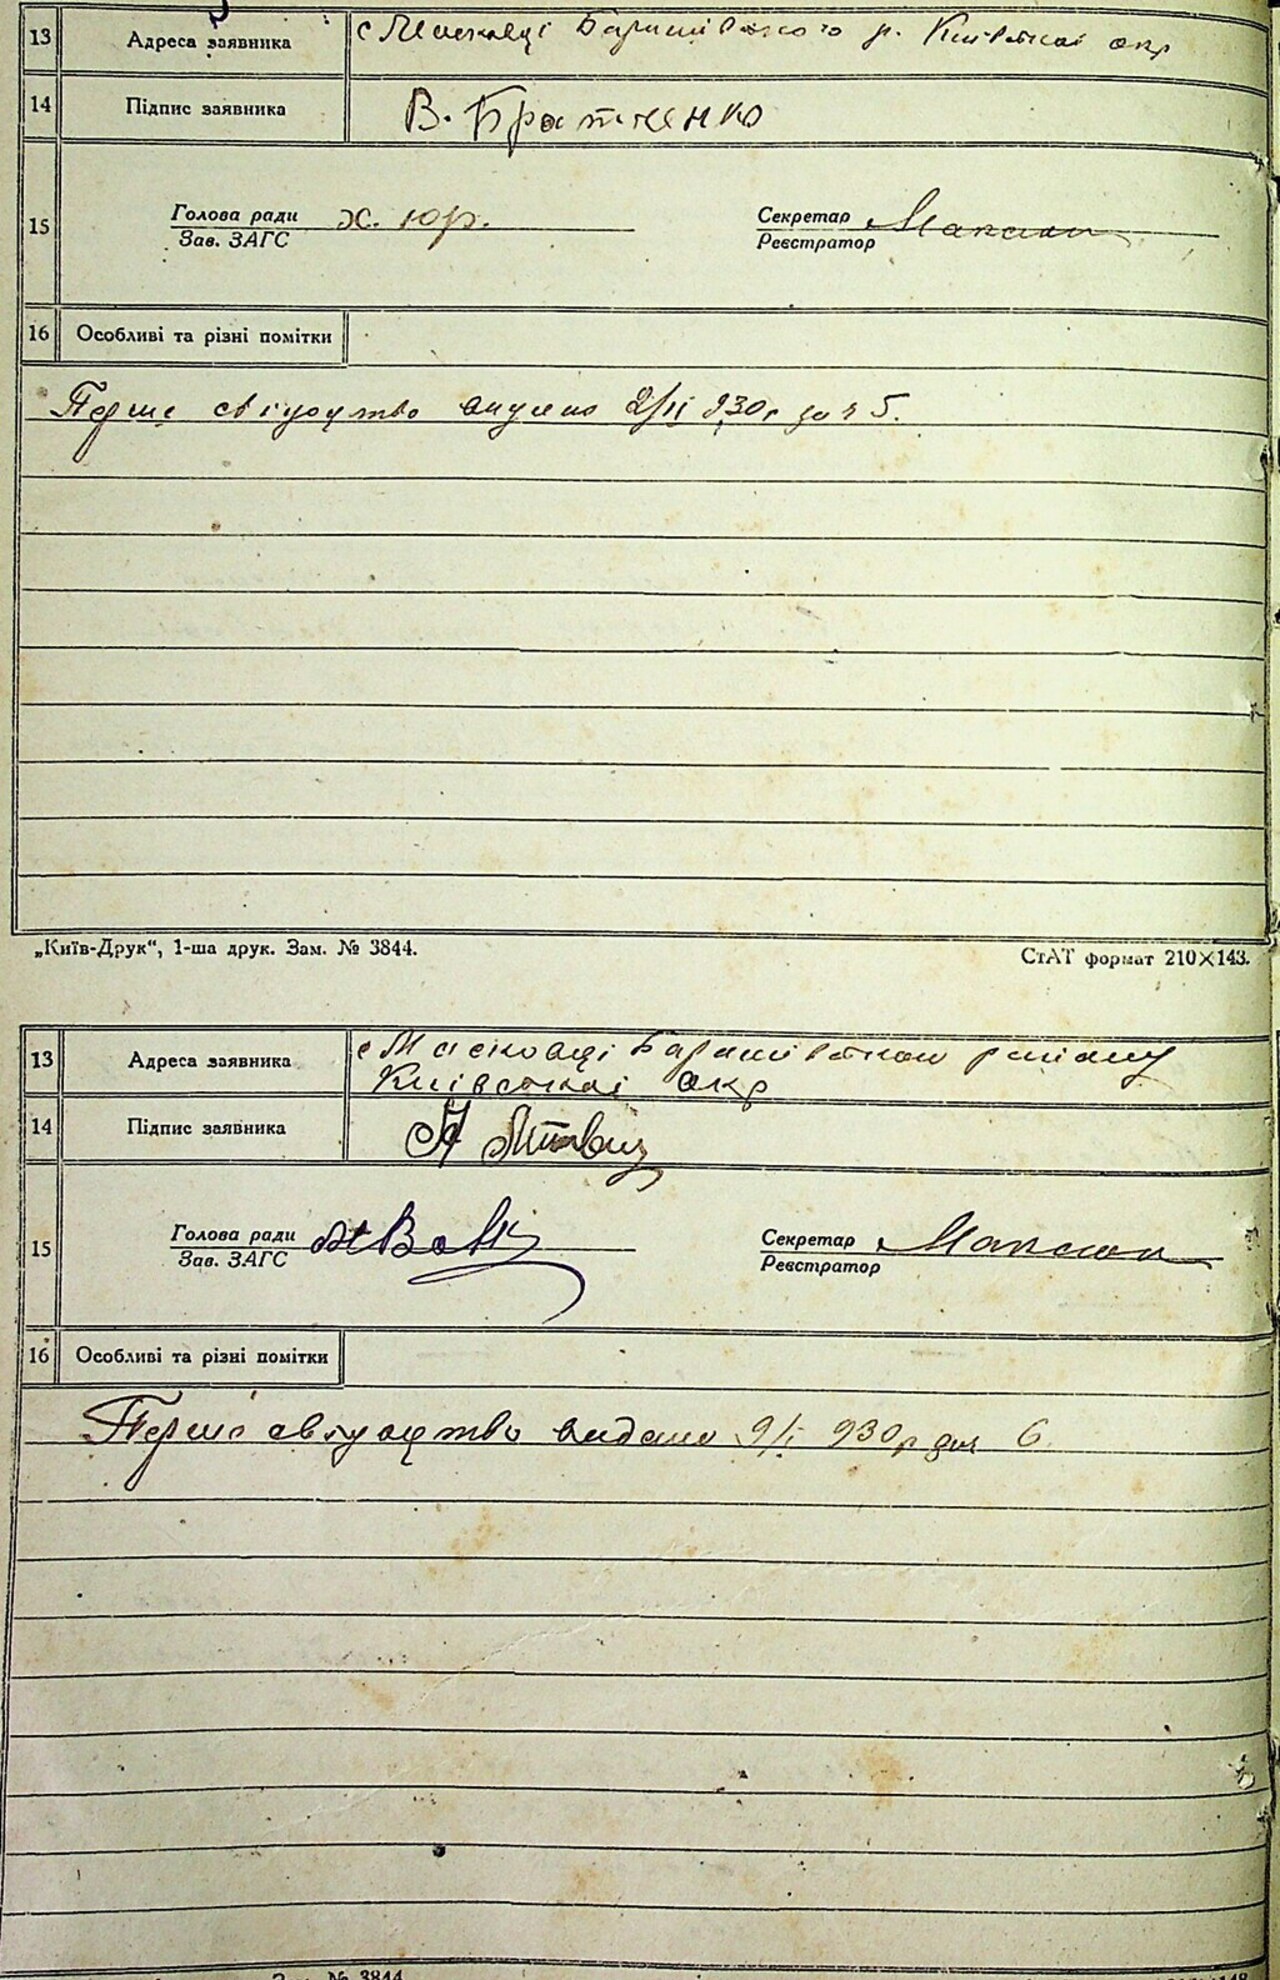 13 Адреса заявника с Масковці Баришівського р. Київської окр
14 Підпис заявника В. Братченко
15 Голова ради Зав. ЗАГС Х. Юр. Секретар Реєстратор
16 Особливі та різні помітки
Перше свідоцтво видано 2/II 930р за № 5.
„Київ-Друк“, 1-ша друк. Зам. № 3844.
СтАТ формат 210×143.
13 Адреса заявника с Масковці Баришівського району
Київської окр
14 Підпис заявника
15 Голова ради Зав. ЗАГС Вовк Секретар Реєстратор
16 Особливі та різні помітки
Перше свідоцтво видано 9/I 930р для 6
Зам. № 3844